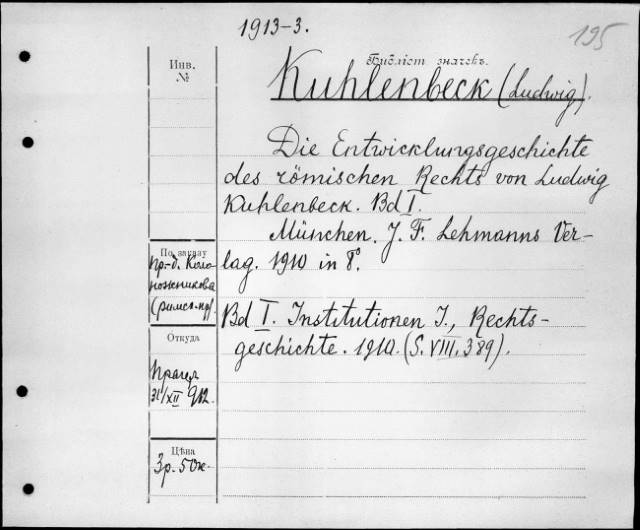 1913-3.
195
Инв.
№
Библіот значекъ.
Kuhlenbeck (Ludwig).
Die Entwicklungsgeschichte
des römischen Rechts von Ludwig
Kuhlenbeck. Bd I.
München. J. F. Lehmanns Ver-
lag. 1910 in 8°.
Bd I. Institutionen I., Rechts-
geschichte. 1910. (S. VIII. 389).
По заказу
пр.-д. Коло-
ножникова
(римск. пр.
Откуда
31/XII 912.
Цѣна
3р. 50к.